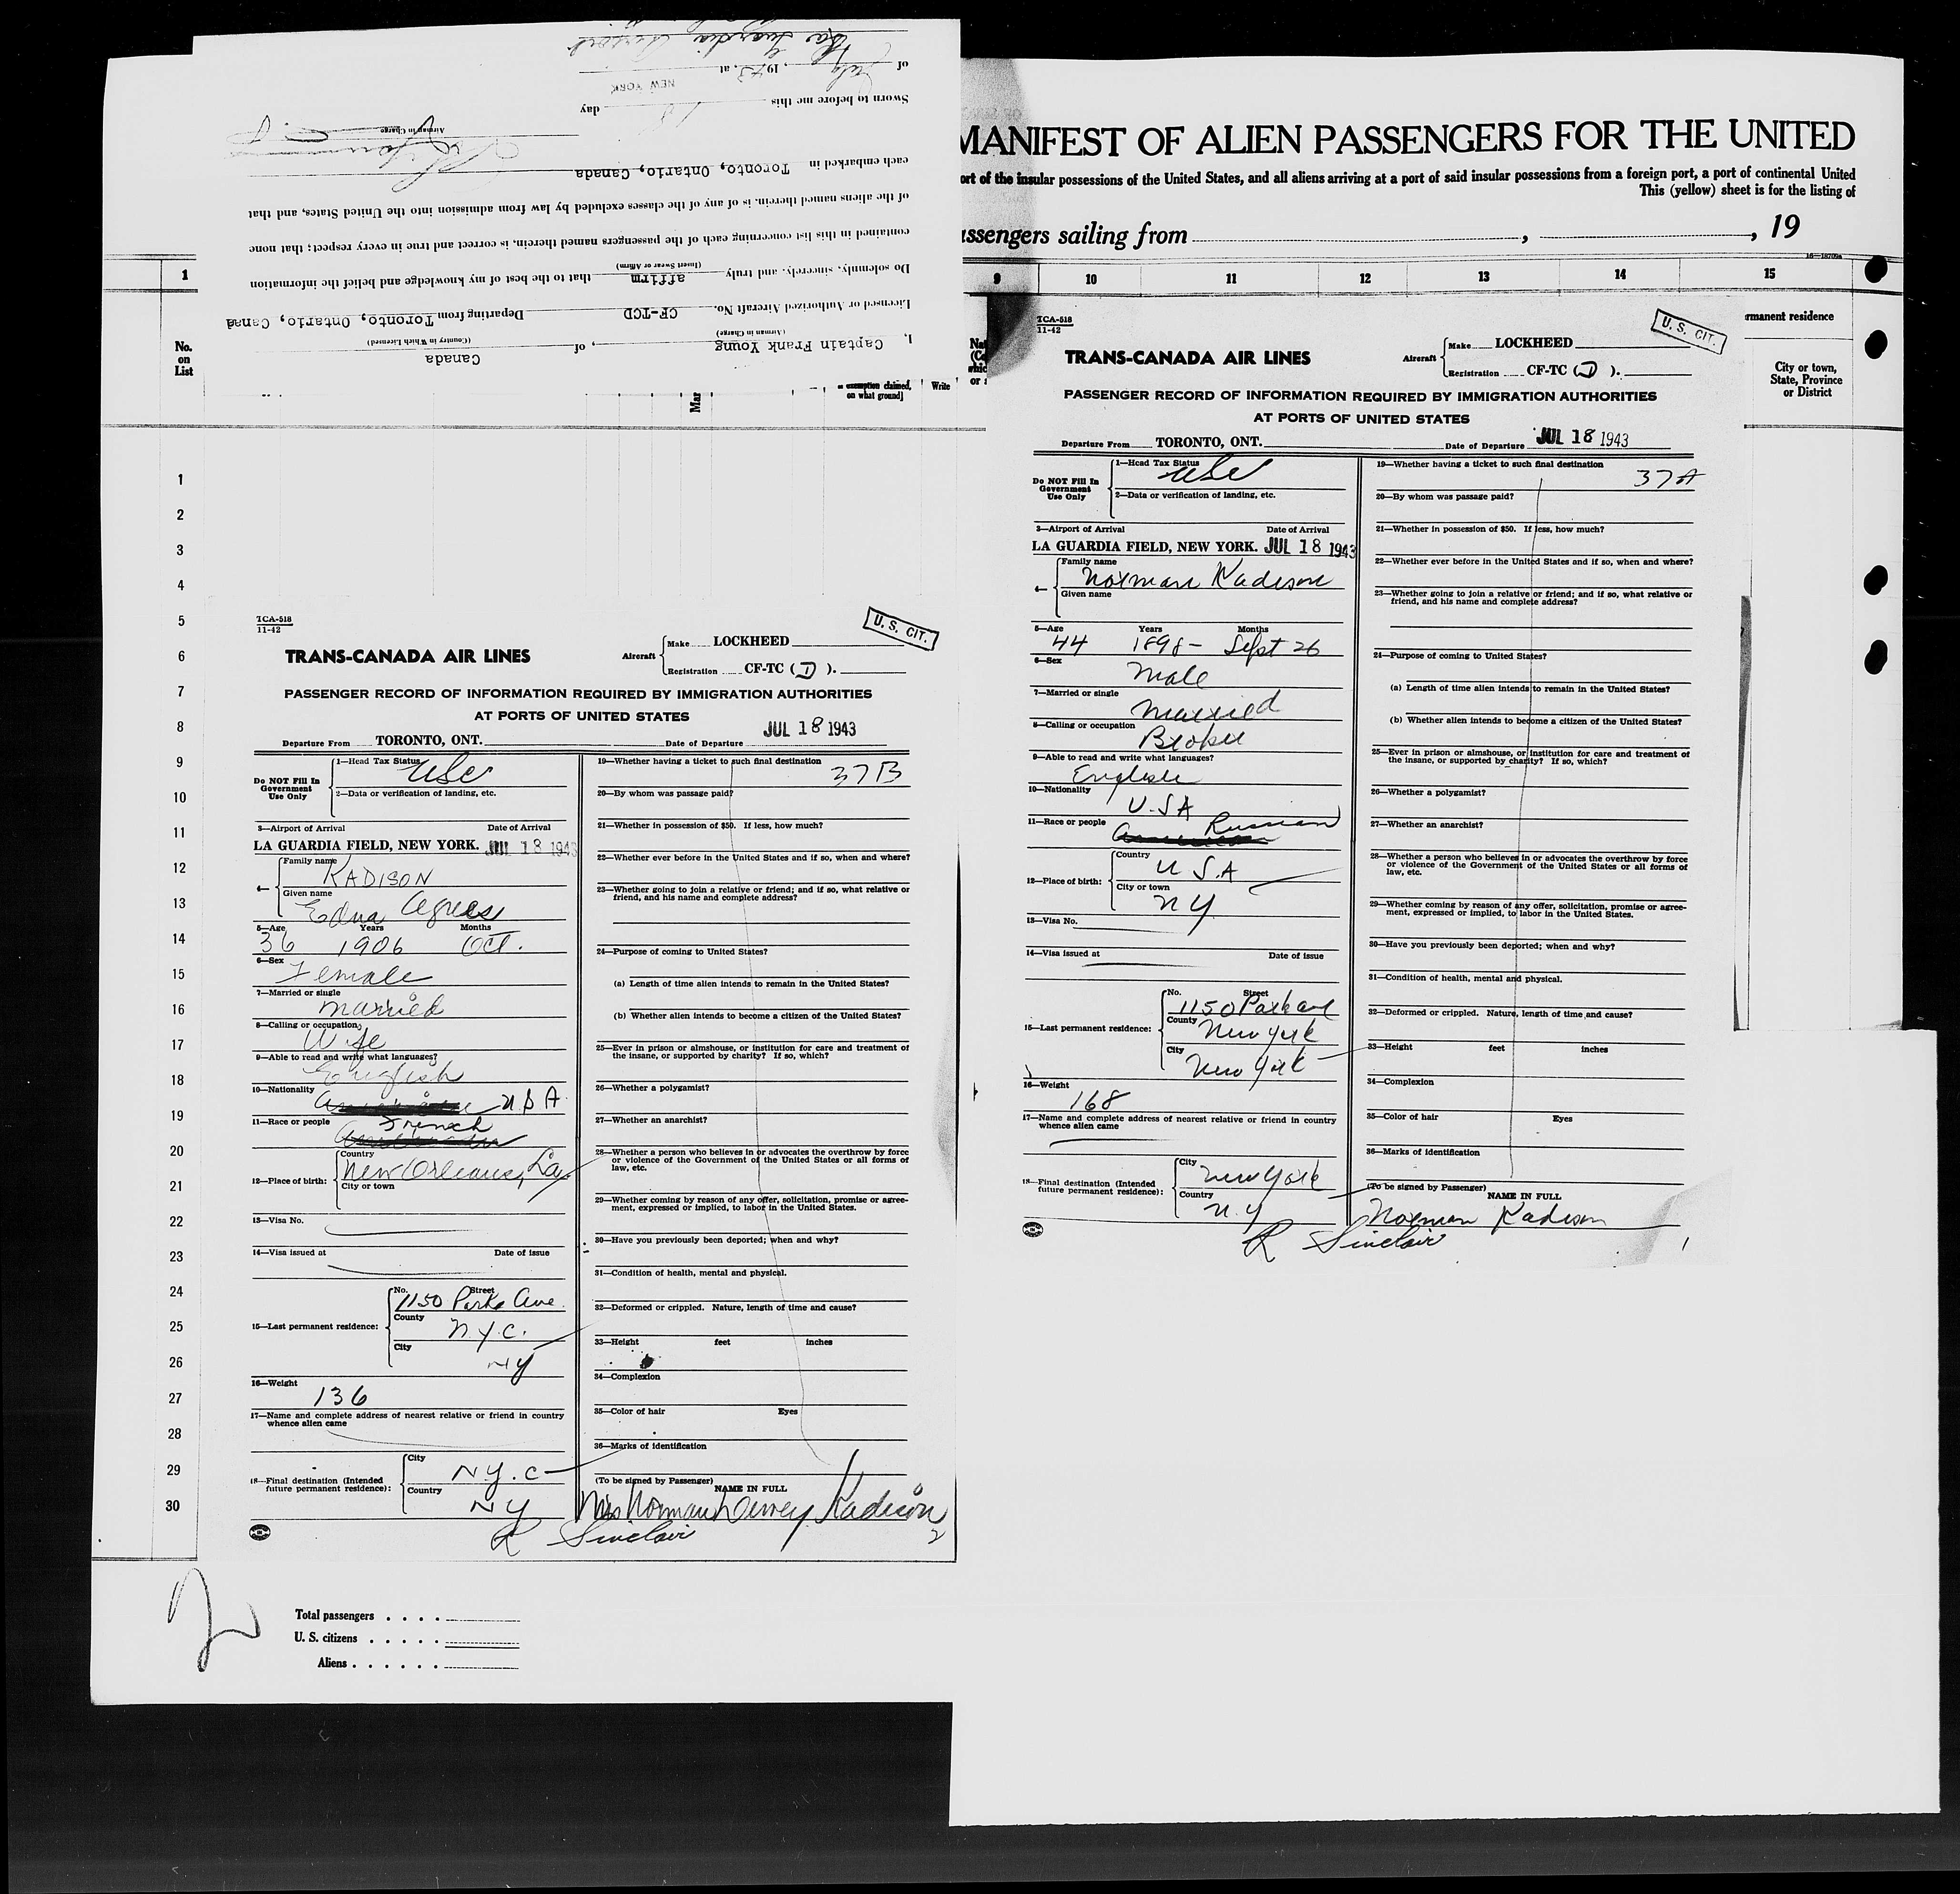 La Guardia Airport
of July, 1943, at
NEW YORK
Sworn to before me this 18 day
Airman in Charge
each embarked in Toronto, Ontario, Canada
of the aliens named therein, is of any of the classes excluded by law from admission into the United States, and that
contained in this list concerning each of the passengers named therein, is correct and true in every respect; that none
(Insert Swear or Affirm)
Do solemnly, sincerely, and truly affirm that to the best of my knowledge and belief the information
Licensed or Authorized Aircraft No. CF-TCD Departing from Toronto, Ontario, Canad
(Airman in Charge) (Country in Which Licensed)
I, Captain Frank Young, of Canada
1
No.
on
List
Mar
exemption claimed,
on what ground]
Write
1
2
3
4
5
6
7
8
9
10
11
12
13
14
15
16
17
18
19
20
21
22
23
24
25
26
27
28
29
30
TCA-518
11-42
U. S. CIT.
TRANS-CANADA AIR LINES
Aircraft Make LOCKHEED
Registration CF-TC ( D ).
PASSENGER RECORD OF INFORMATION REQUIRED BY IMMIGRATION AUTHORITIES
AT PORTS OF UNITED STATES
Departure From TORONTO, ONT. Date of Departure JUL 18 1943
Do NOT Fill In
Government
Use Only
1—Head Tax Status USC
2—Data or verification of landing, etc.
3—Airport of Arrival Date of Arrival
LA GUARDIA FIELD, NEW YORK. JUL 18 1943
4—
Family name KADISON
Given name Edna Agnes
5—Age Years Months
36 1906 Oct.
6—Sex Female
7—Married or single
married
8—Calling or occupation
Wife
9—Able to read and write what languages?
English
10—Nationality U S A
11—Race or people French
12—Place of birth:
Country
New Orleans, La
City or town
13—Visa No.
14—Visa issued at Date of issue
15—Last permanent residence:
No. Street
1150 Park Ave.
County N.Y.C.
City NY
16—Weight
136
17—Name and complete address of nearest relative or friend in country
whence alien came
18—Final destination (Intended
future permanent residence):
City N.Y.C
Country NY
19—Whether having a ticket to such final destination
37B
20—By whom was passage paid?
21—Whether in possession of $50. If less, how much?
22—Whether ever before in the United States and if so, when and where?
23—Whether going to join a relative or friend; and if so, what relative or
friend, and his name and complete address?
24—Purpose of coming to United States?
(a) Length of time alien intends to remain in the United States?
(b) Whether alien intends to become a citizen of the United States?
25—Ever in prison or almshouse, or institution for care and treatment of
the insane, or supported by charity? If so, which?
26—Whether a polygamist?
27—Whether an anarchist?
28—Whether a person who believes in or advocates the overthrow by force
or violence of the Government of the United States or all forms of
law, etc.
29—Whether coming by reason of any offer, solicitation, promise or agree-
ment, expressed or implied, to labor in the United States.
30—Have you previously been deported; when and why?
31—Condition of health, mental and physical.
32—Deformed or crippled. Nature, length of time and cause?
33—Height feet inches
34—Complexion
35—Color of hair Eyes
36—Marks of identification
(To be signed by Passenger)
NAME IN FULL
Mrs Norman Dewey Kadison
R Sinclair
2
Total passengers
U. S. citizens
Aliens
MANIFEST OF ALIEN PASSENGERS FOR THE UNITED
ort of the insular possessions of the United States, and all aliens arriving at a port of said insular possessions from a foreign port, a port of continental United
This (yellow) sheet is for the listing of
assengers sailing from , , 19
16—18709a
9 10 11 12 13 14 15
rmanent residence
City or town,
State, Province
or District
TCA-518
11-42
U. S. CIT.
TRANS-CANADA AIR LINES
Aircraft Make LOCKHEED
Registration CF-TC ( D ).
PASSENGER RECORD OF INFORMATION REQUIRED BY IMMIGRATION AUTHORITIES
AT PORTS OF UNITED STATES
Departure From TORONTO, ONT. Date of Departure JUL 18 1943
Do NOT Fill In
Government
Use Only
1—Head Tax Status USC
2—Data or verification of landing, etc.
3—Airport of Arrival Date of Arrival
LA GUARDIA FIELD, NEW YORK. JUL 18 1943
4—
Family name
Norman Kadison
Given name
5—Age Years Months
44 1898 – Sept 26
6—Sex Male
7—Married or single
Married
8—Calling or occupation
Broker
9—Able to read and write what languages?
English
10—Nationality U.S.A
11—Race or people Russian
12—Place of birth:
Country
U S.A
City or town
NY
13—Visa No.
14—Visa issued at Date of issue
15—Last permanent residence:
No. Street
1150 Park Ave
County New York
City New York
16—Weight
168
17—Name and complete address of nearest relative or friend in country
whence alien came
18—Final destination (Intended
future permanent residence):
City New York
Country N.Y
19—Whether having a ticket to such final destination
37A
20—By whom was passage paid?
21—Whether in possession of $50. If less, how much?
22—Whether ever before in the United States and if so, when and where?
23—Whether going to join a relative or friend; and if so, what relative or
friend, and his name and complete address?
24—Purpose of coming to United States?
(a) Length of time alien intends to remain in the United States?
(b) Whether alien intends to become a citizen of the United States?
25—Ever in prison or almshouse, or institution for care and treatment of
the insane, or supported by charity? If so, which?
26—Whether a polygamist?
27—Whether an anarchist?
28—Whether a person who believes in or advocates the overthrow by force
or violence of the Government of the United States or all forms of
law, etc.
29—Whether coming by reason of any offer, solicitation, promise or agree-
ment, expressed or implied, to labor in the United States.
30—Have you previously been deported; when and why?
31—Condition of health, mental and physical.
32—Deformed or crippled. Nature, length of time and cause?
33—Height feet inches
34—Complexion
35—Color of hair Eyes
36—Marks of identification
(To be signed by Passenger)
NAME IN FULL
Norman Kadison
R Sinclair
1